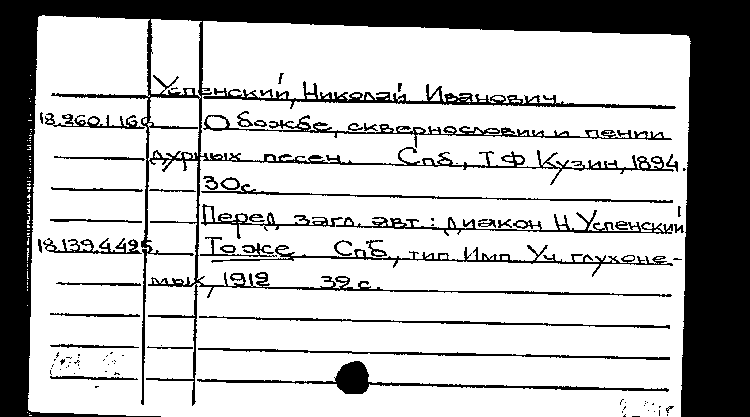 Успенский, Николай Иванович.
18.260.1.166 О божбе, сквернословии и пении
дурных песен. Спб., Т.Ф. Кузин, 1894.
30с.
Перед загл. авт.: диакон Н. Успенский
18.139.4.425. То же. Спб., тип. Имп. Уч. глухоне-
мых, 1912 32 с.